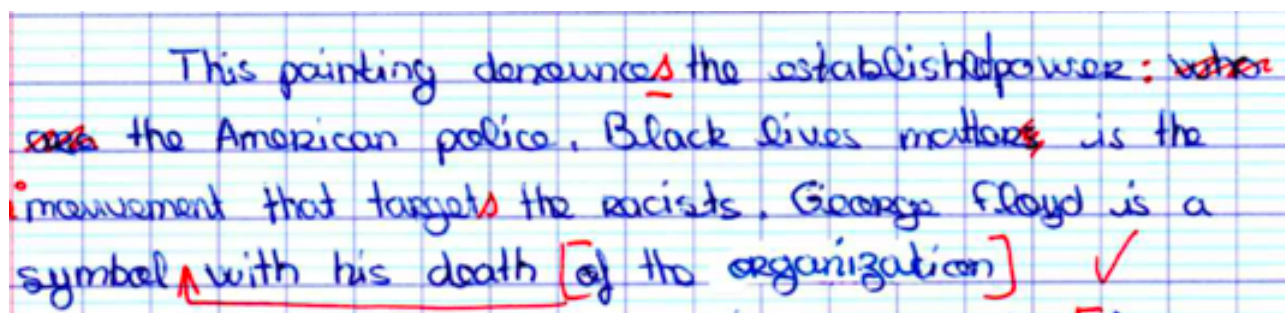 This painting denounces the establishedpower:
the American police. Black lives matter is the
mouvement that targets the racists. George Floyd is a
symbol with his death [of the organization]